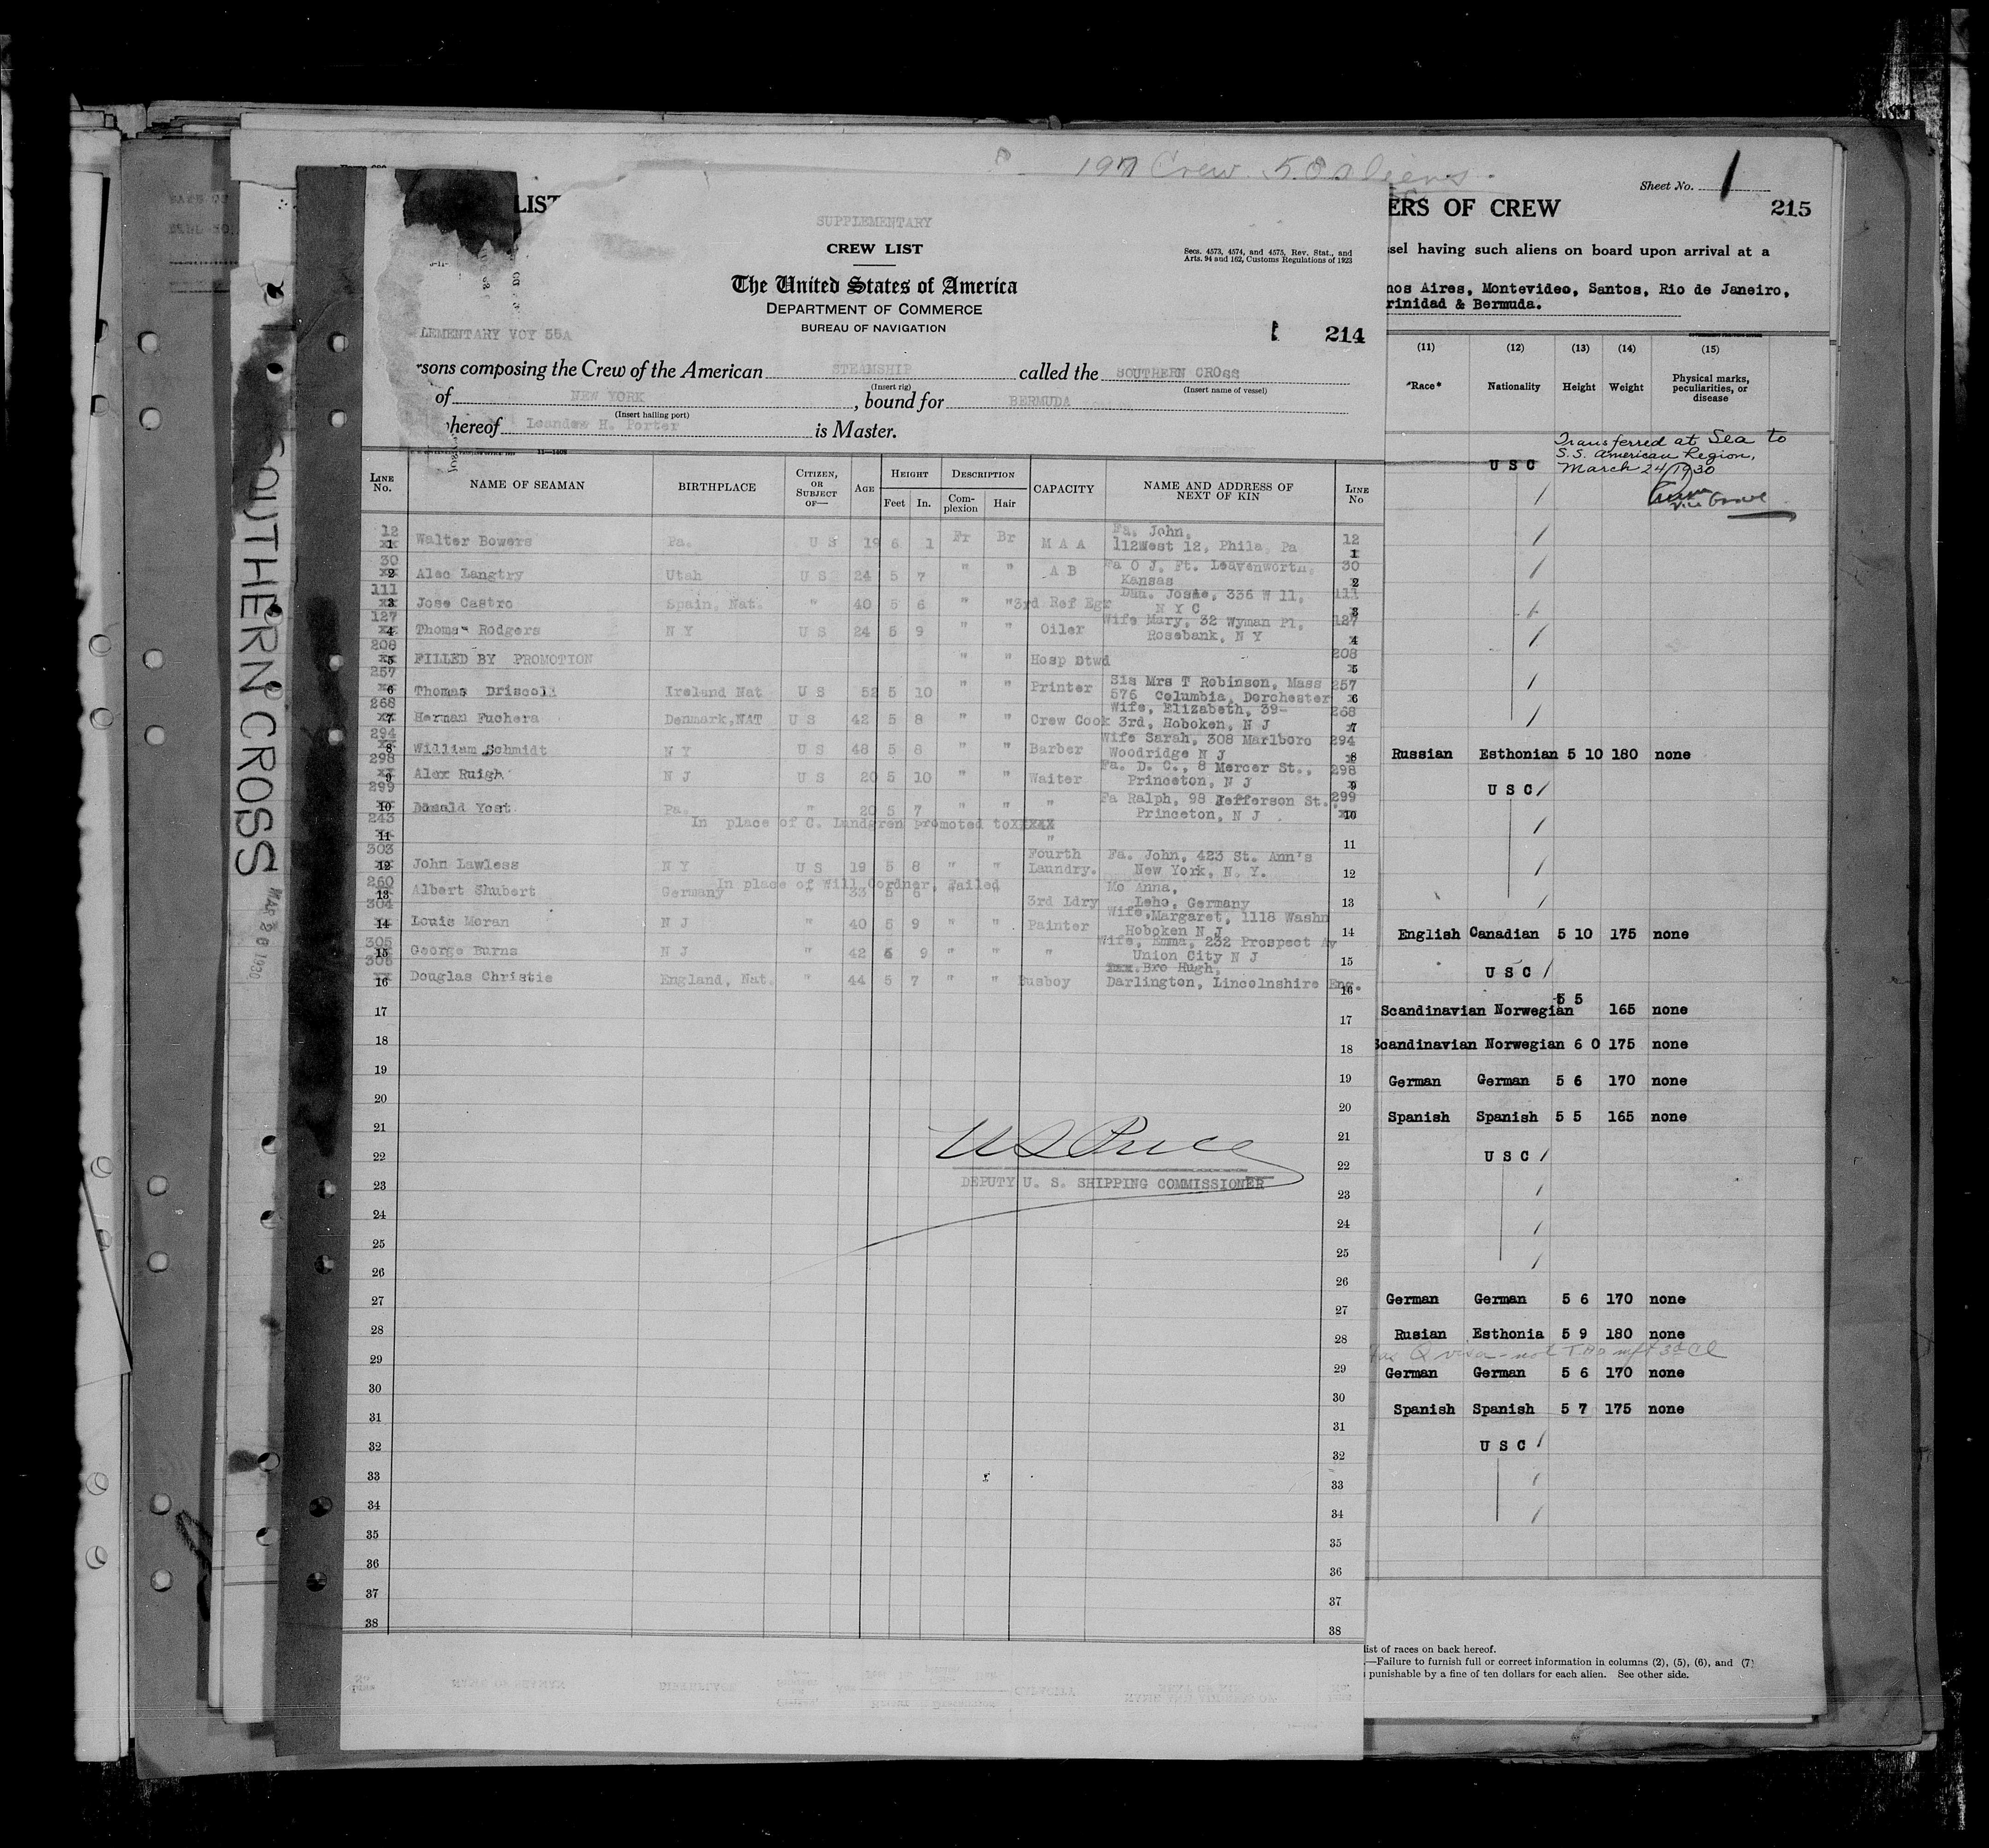 197 Crew. 58 aliens.
LIST
SUPPLEMENTARY
CREW LIST
Secs. 4573, 4574, and 4575, Rev. Stat., and
Arts. 94 and 162, Customs Regulations of 1923
The United States of America
DEPARTMENT OF COMMERCE
BUREAU OF NAVIGATION
LEMENTARY VOY 55A
214
rsons composing the Crew of the American STEAMSHIP called the SOUTHERN CROSS
(Insert rig) (Insert name of vessel)
of NEW YORK, bound for BERMUDA
(Insert hailing port)
hereof Leandew H. Porter is Master.
LINE No. NAME OF SEAMAN BIRTHPLACE CITIZEN, OR SUBJECT OF— AGE HEIGHT Feet In. DESCRIPTION Complexion Hair CAPACITY NAME AND ADDRESS OF NEXT OF KIN LINE No
12 Fa. John, 12
1 Walter Bowers Pa. U S 19 6 1 Fr Br M A A 112West 12, Phila, Pa 1
30 Fa O J, Ft. Leavenworth, 30
2 Alec Langtry Utah U S 24 5 7 " " A B Kansas 2
111 Dau. Josie, 336 W 11, 111
3 Jose Castro Spain, Nat. " 40 5 6 " " 3rd Ref Egr N Y C 3
127 Wife Mary, 32 Wyman Pl, 127
4 Thomas Rodgers N Y U S 24 5 9 " " Oiler Rosebank, N Y 4
208 208
5 FILLED BY PROMOTION " " Hosp Stwd 5
257 Sis Mrs T Robinson, Mass 257
6 Thomas Driscoll Ireland Nat U S 52 5 10 " " Printer 576 Columbia, Dorchester 6
268 Wife, Elizabeth, 39- 268
7 Herman Fuchera Denmark, NAT U S 42 5 8 " " Crew Cook 3rd, Hoboken, N J 7
294 Wife Sarah, 308 Marlboro 294
8 William Schmidt N Y U S 48 5 8 " " Barber Woodridge N J 8
298 Fa. D. C., 8 Mercer St., 298
9 Alex Ruigh N J U S 20 5 10 " " Waiter Princeton, N J 9
299 Fa Ralph, 98 Jefferson St. 299
10 Donald Yost Pa. " 20 5 7 " " " Princeton, N J 10
243 In place of C. Lundgren promoted to
11 " 11
303 Fourth Fa. John, 423 St. Ann's
12 John Lawless N Y U S 19 5 8 " " Laundry. New York, N. Y. 12
260 In place of Will Cordner, Failed Mo Anna,
13 Albert Shubert Germany 33 5 6 " " 3rd Ldry Lehe, Germany 13
304 Wife, Margaret, 1118 Washn
14 Louis Moran N J " 40 5 9 " " Painter Hoboken N J 14
305 Wife, Emma, 232 Prospect Av
15 George Burns N J " 42 5 9 " " " Union City N J 15
306 Bro Hugh,
16 Douglas Christie England, Nat. " 44 5 7 " " Busboy Darlington, Lincolnshire Eng. 16
17 17
18 18
19 19
20 20
21 21
22 22
23 23
24 24
25 25
26 26
27 27
28 28
29 29
30 30
31 31
32 32
33 33
34 34
35 35
36 36
37 37
38 38
DEPUTY U. S. SHIPPING COMMISSIONER
SOUTHERN CROSS
MAR 26 1930
Sheet No. 1
ERS OF CREW
215
sel having such aliens on board upon arrival at a
nos Aires, Montevideo, Santos, Rio de Janeiro,
rinidad & Bermuda.
(11) (12) (13) (14) (15)
Race* Nationality Height Weight Physical marks, peculiarities, or disease
Transferred at Sea to
S.S. American Legion,
March 24/1930
U S C
Russian Esthonian 5 10 180 none
U S C
English Canadian 5 10 175 none
U S C
Scandinavian Norwegian 5 5 165 none
Scandinavian Norwegian 6 0 175 none
German German 5 6 170 none
Spanish Spanish 5 5 165 none
U S C
German German 5 6 170 none
Rusian Esthonia 5 9 180 none
German German 5 6 170 none
Spanish Spanish 5 7 175 none
U S C
list of races on back hereof.
—Failure to furnish full or correct information in columns (2), (5), (6), and (7)
punishable by a fine of ten dollars for each alien. See other side.